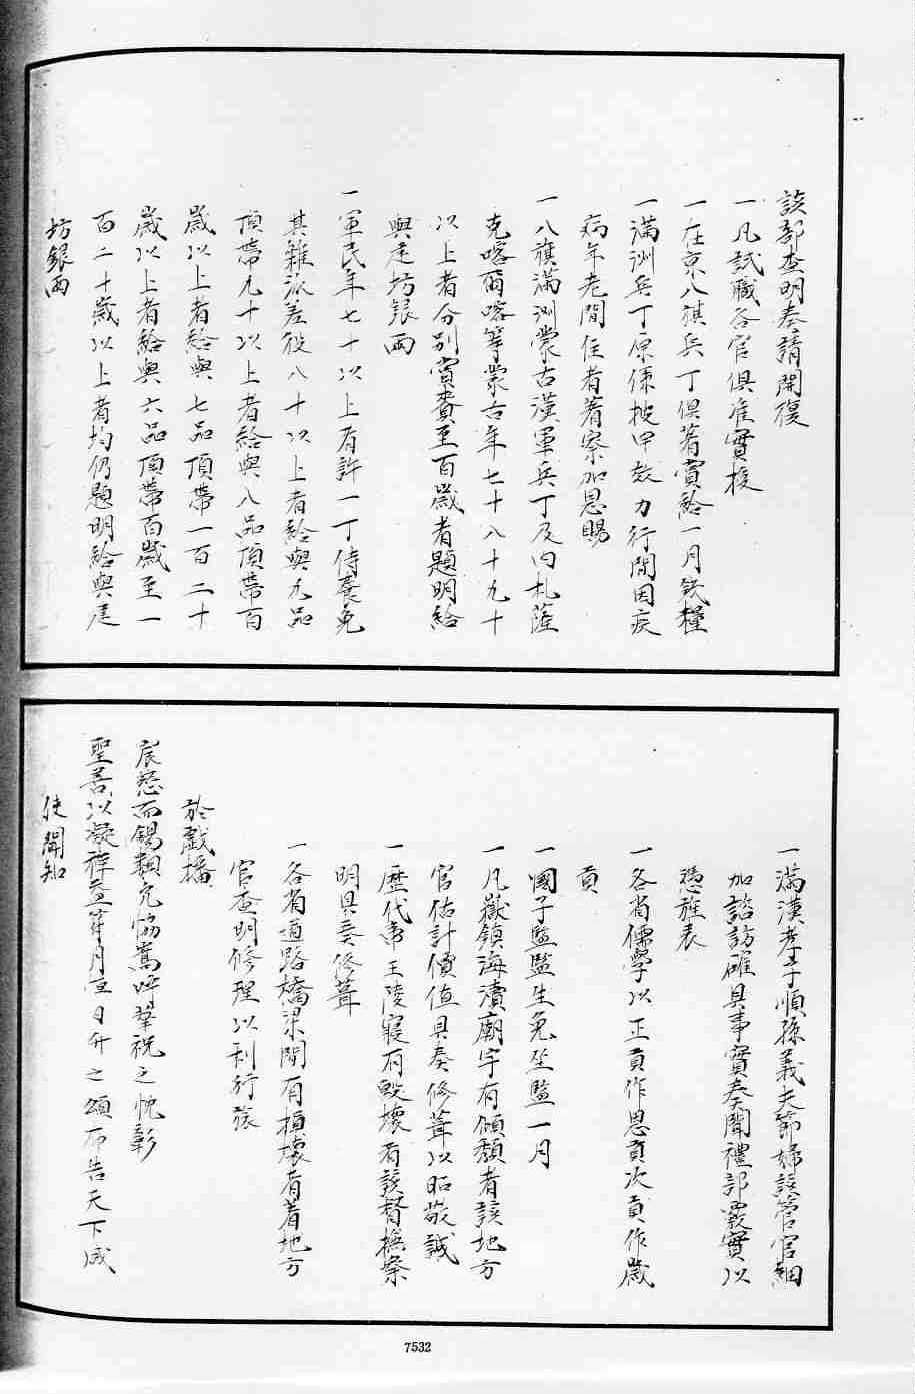 該部查明奏請開復
一凡試職各官俱准實授
一在京八旗兵丁俱著賞給一月錢糧
一滿洲兵丁原係披甲效力行間因疾
病年老閒住者著察加恩賜
一八旗滿洲蒙古漢軍兵丁及內札薩
克喀爾喀等蒙古年七十八十九十
以上者分別賞賚至百歲者題明給
與建坊銀兩
一軍民年七十以上者許一丁侍養免
其雜派差役八十以上者給與九品
頂帶九十以上者給與八品頂帶百
歲以上者給與七品頂帶一百二十
歲以上者給與六品頂帶百歲至一
百二十歲以上者均仍題明給與建
坊銀兩
一滿漢孝子順孫義夫節婦該管官細
加諮訪確具事實奏聞禮部覈實以
憑旌表
一各省儒學以正貢作恩貢次貢作歲
貢
一國子監監生免坐監一月
一凡嶽鎮海瀆廟宇有傾頹者該地方
官估計價值具奏修葺以昭敬誠
一歷代帝王陵寢有毀壞者該督撫察
明具奏修葺
一各省道路橋梁間有損壞者著地方
官查明修理以利行旅
於戲播
宸慈而錫類允協嵩呼華祝之忱彰
聖善以凝祥益篤月恒日升之頌布告天下咸
使聞知
7532